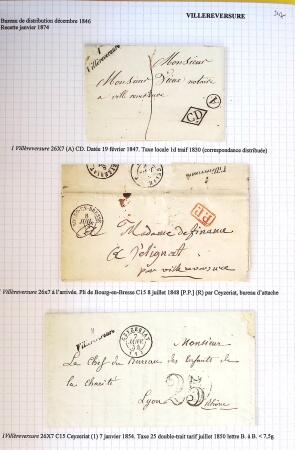 VILLEREVERSURE
Bureau de distribution décembre 1846
Recette janvier 1874
1
Villereversure
Monsieur
Monsieur Dias notaire
a ville reversure
A
CD
1 Villereversure 26X7 (A) CD. Datée 19 février 1847. Taxe locale 1d traif 1830 (correspondance distribuée)
CEYZERIAT
Villereversure
BOURG-EN-BRESSE
8
JUIL
P.P.
A
Madame
a
par ville reversure
1 Villereversure 26x7 à l'arrivée. Pli de Bourg-en-Bresse C15 8 juillet 1848 [P.P.] (R) par Ceyzeriat, bureau d'attache
Villereversure
CEYZERIAT
7
JANV
54
(1)
Monsieur
Le Chef du Bureau des Enfants de
la charité
25
Lyon
Rhône
1 Villereversure 26X7 C15 Ceyzeriat (1) 7 janvier 1854. Taxe 25 double-trait tarif juillet 1850 lettre B. à B. < 7,5g